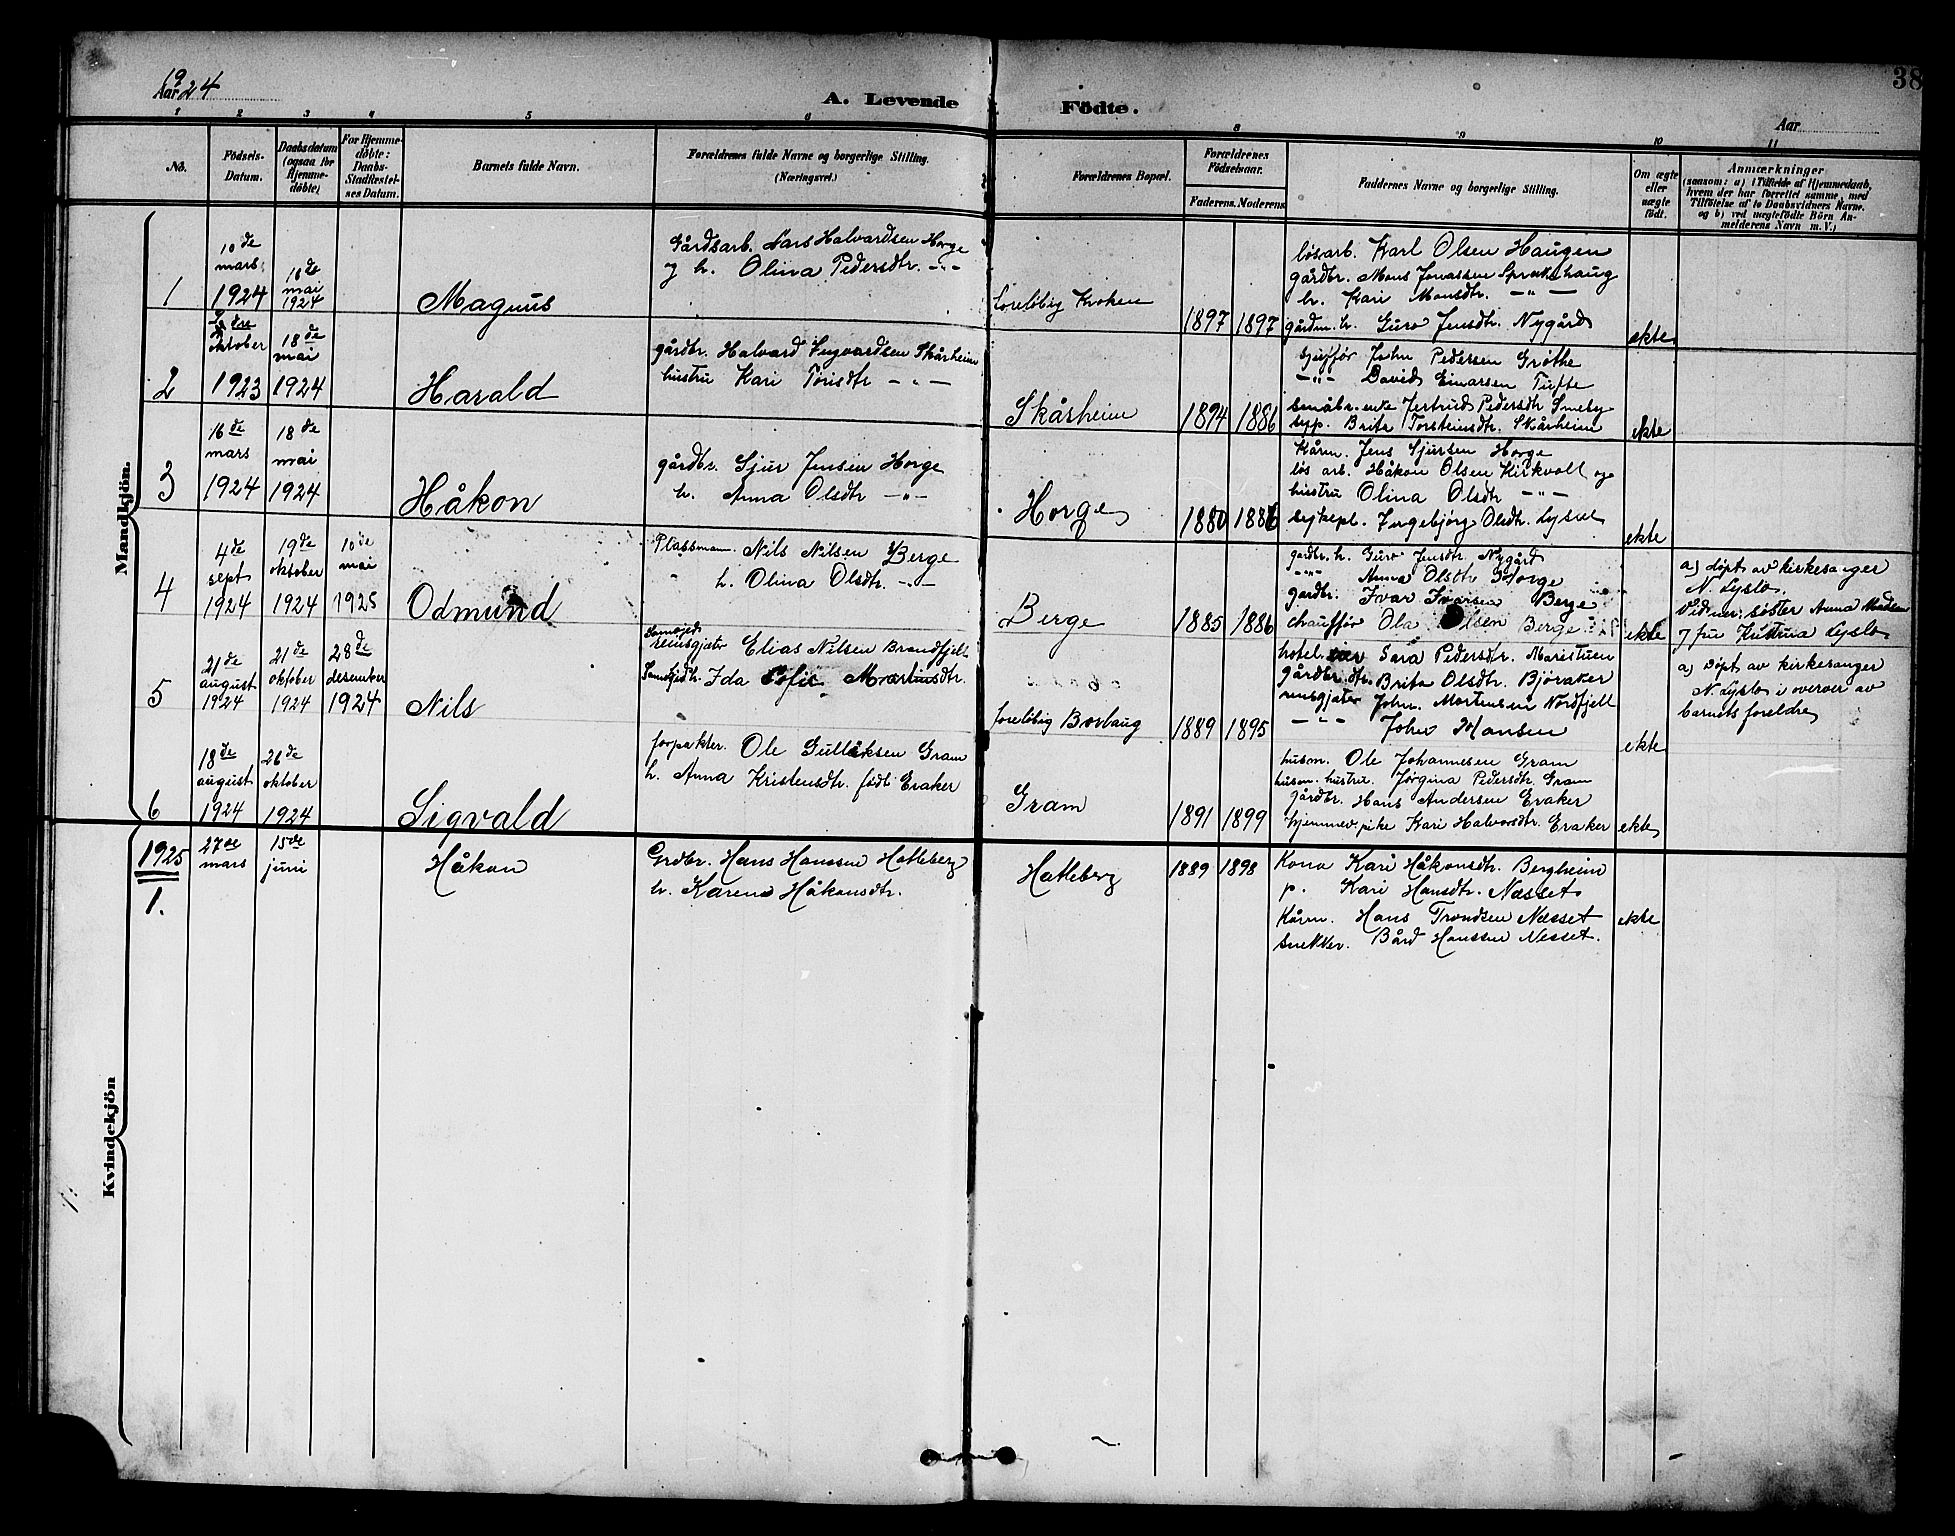 Aar 1924
A. Levende Födte.
Aar
38
1 2 3 4 5 6 8 9 10 11
No.
Födsels-Datum.
Daabsdatum (ogsaa for Hjemme-döbte)
For Hjemme-döbte: Daabs-Stadfæstel-ses Datum.
Barnets fulde Navn.
Forældrenes fulde Navne og borgerlige Stilling. (Næringsvei.)
Forældrenes Bopæl.
Forældrenes Födselsaar.
Faderens. Moderens.
Faddernes Navne og borgerlige Stilling.
Om ægte eller uægte födt.
Anmærkninger
(saasom: a) i Tilfælde af Hjemmedaab, hvem der har forrettet samme, med Tilföielse af to Daabsvidners Navne. og b) ved uægtefödte Börn An-melderens Navn m. V.)
Mandkjön.
1
10de mars 1924
18de mai 1924
Magnus
Gårdsarb. Lars Halvardsen Horge
og h. Olina Pedersdtr. -"-
Foreløbig Kroken
1897 1897
løsarb. Karl Olsen Haugen
gårdbr. Mons Jonassen Sprakehaug
h. Kari Monsdtr. -"-
gårdm. h. Guro Jensdtr. Nygård
ekte
2
oktober 1923
18de mai 1924
Harald
gårdbr. Halvard Ingvardsen Skårheim
hustru Kari Torisdtr -"-
Skårheim
1894 1886
John Pedersen Grøthe
-"- David Einarsen Tufte
småbr. enke Jertrud Pedersdtr Smeby
syp. Brita Torsteinsdtr. Skårheim
ekte
3
16de mars 1924
18de mai 1924
Håkon
gårdbr. Sjur Jensen Horge
h. Anna Olsdtr -"-
Horge
1880 1886
Kårm. Jens Sjursen Horge
løs arb. Håkon Olsen Kirkvoll og
hustru Olina Olsdtr -"-
sykepl. Ingebjørg Olsdtr. Lyslo
ekte
4
4de sept 1924
19de oktober 1924
10de mai 1925
Odmund
Plassmann. Nils Nilsen Berge
h. Olina Olsdtr. -"-
Berge
1885 1886
gardbr. h. Guro Jensdtr. Nygård
-"- Anna Olsdtr Horge
gardbr. Ivar Ivarsen Berge
chauffør Ola Olsen Berge
ekte
a) døpt av kirkesanger
N. Lyslo.
Vidner: søster Anna Madsen
7 fru Kristina Lyslo
5
21de august 1924
21de oktober 1924
28de desember 1924
Nils
reinsgjæter Elias Nilsen Brandfjell
Ida Sofie Martinsdtr.
foreløbig Borlaug
1889 1895
hotel. Sara Pedersdtr. Maristuen
Gårdbr. dtr. Brita Olsdtr. Bjøraker
reinsgjæter John. Mortensen Nordfjell
-"- John Hansen
ekte
a) Døpt av kirkesanger
N. Lyslo i overvær av
barnets foreldre
6
18de august 1924
26de oktober 1924
Sigvald
forpakter. Ole Gulleiksen Gram
h. Anna Kristensdtr. født Eraker
Gram
1891 1899
husm. Ole Johannesen Gram
husm. hustru. Jørgina Pedersdtr. Gram
Gårdbr. Hans Andersen Eraker
hjemmev. pike Kari Halvorsdtr. Eraker
ekte
1925
1.
27de mars
15de juni
Håkon
Grdbr. Hans Hanssen Hatleberg
h. Karen Håkonsdtr.
Hatleberg
1889 1898
Kona Kari Håkonsdtr. Bergheim
p. Kari Hansdtr. Næsset
Kårm. Hans Trondsen Næsset
snekker. Bård Hanssen Nesset.
ekte
Kvindekjön